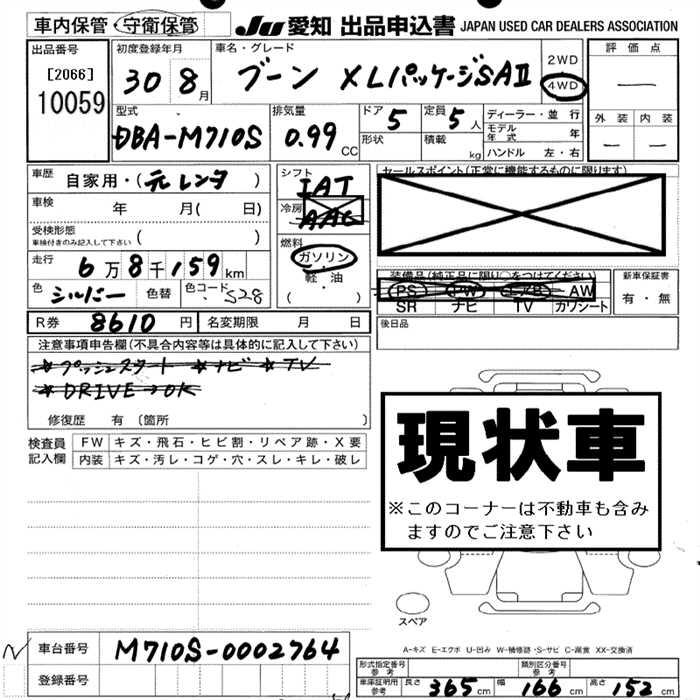 車内保管・守衛保管 JU 愛知 出品申込書 JAPAN USED CAR DEALERS ASSOCIATION
出品番号 [2066] 10059
初度登録年月 30 8月
車名・グレード ブーン XLパッケージSAⅡ
2WD
4WD
評価点 —
外装 内装
— —
型式 DBA-M710S
排気量 0.99 CC
ドア 5 定員 5人
形状 積載 kg
ディーラー・並行
モデル年式 年
ハンドル 左・右
車歴 自家用・(元レンタ)
車検 年 月( 日)
受検形態 ( )
車検付きのみ記入して下さい
走行 6万8千159km
色 シルバー 色替 色コード S28
シフト IAT
冷房 AAC
燃料 ガソリン
軽・油
( )
セールスポイント(正常に機能するものに限ります)
装備品(純正品に限り○をつけてください)
PS PW エアB AW
SR ナビ TV カワシート
新車保証書
有・無
R券 8610円 名変期限 月 日
後日品
注意事項申告欄(不具合内容等は具体的に記入して下さい)
*プッシュスタート *ナビ *TV
*DRIVE→OK
修復歴 有 (箇所 )
検査員記入欄
FW キズ・飛石・ヒビ割・リペア跡・X要
内装 キズ・汚レ・コゲ・穴・スレ・キレ・破レ
現状車
※このコーナーは不動車も含み
ますのでご注意下さい
スペア
A-キズ E-エクボ U-凹み W-補修跡 S-サビ C-腐食 XX-交換済
車台番号 M710S-0002764
登録番号
型式指定番号 参考 類別区分番号 参考
車庫証明用 参考 長さ 365cm 幅 166cm 高さ 152cm